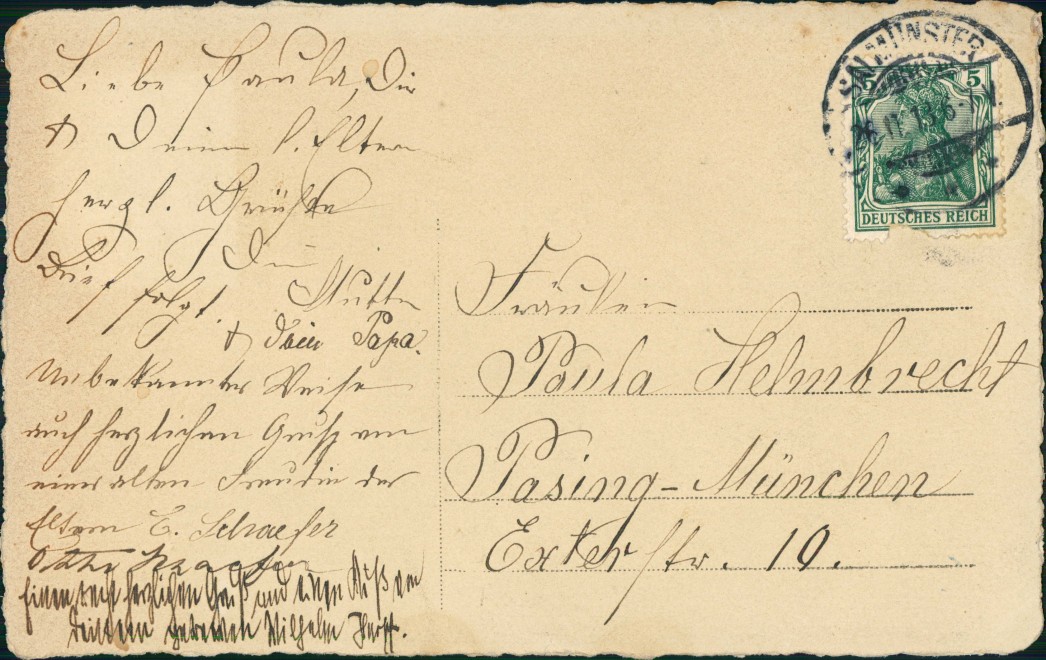 Liebe Paula, Dir
& Deinen l. Eltern
herzl. Grüße
Brief folgt. Mutter
& Dein Papa.
Unbekannter Weise
auch herzlichen Gruß von
einer alten Freundin der
Eltern E. Schaefer
Otto
Einen recht herzlichen Gruß und einen Kuß von
Deinem getreuen Wilhelm
SALMÜNSTER
5
5
DEUTSCHES REICH
Fräulein
Paula Helmbrecht
Pasing-München
Exterstr. 19.